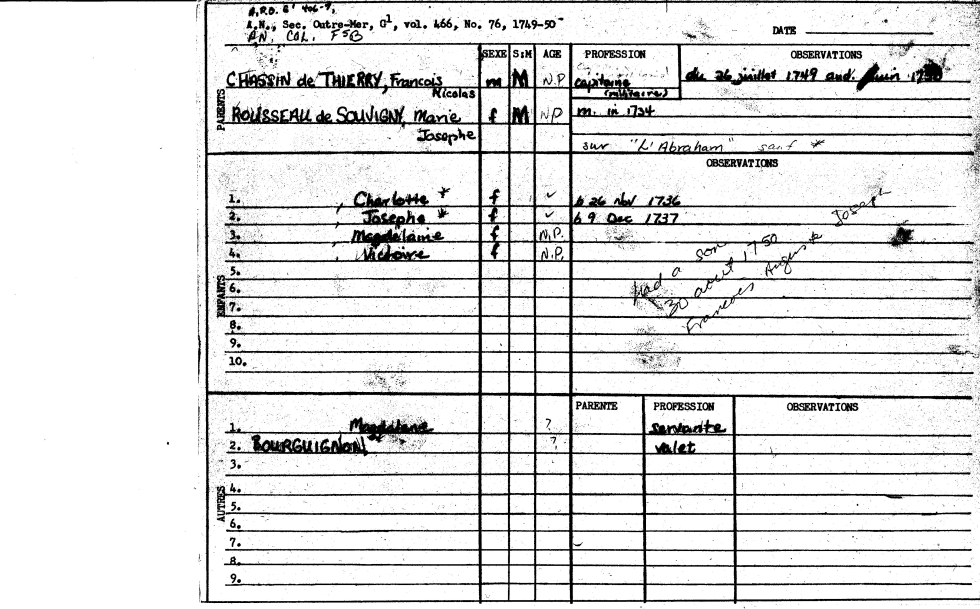 A.N., Sec. Outre-Mer, G1, vol. 466, No. 76, 1749-50
AN. COL. F5B
DATE
SEXE S:M AGE PROFESSION OBSERVATIONS
PARENTS
CHASSIN de THIERRY, Francois Nicolas m M N.P. capitaine (militaire) du 26 juillet 1749 and juin
ROUSSEAU de SOUVIGNY, Marie Josephe f M N.P. m. in 1734
sur "L'Abraham" sauf *
OBSERVATIONS
ENFANTS
1. Charlotte * f ✓ b 26 Nov 1736
2. Josephe * f ✓ b 9 Dec 1737
3. Magdelaine f N.P.
4. Victoire f N.P.
had a son
30 aout 1750
Francois Auguste Joseph
5.
6.
7.
8.
9.
10.
PARENTE PROFESSION OBSERVATIONS
AUTRES
1. Magdelaine ? servante
2. BOURGUIGNON ? valet
3.
4.
5.
6.
7.
8.
9.